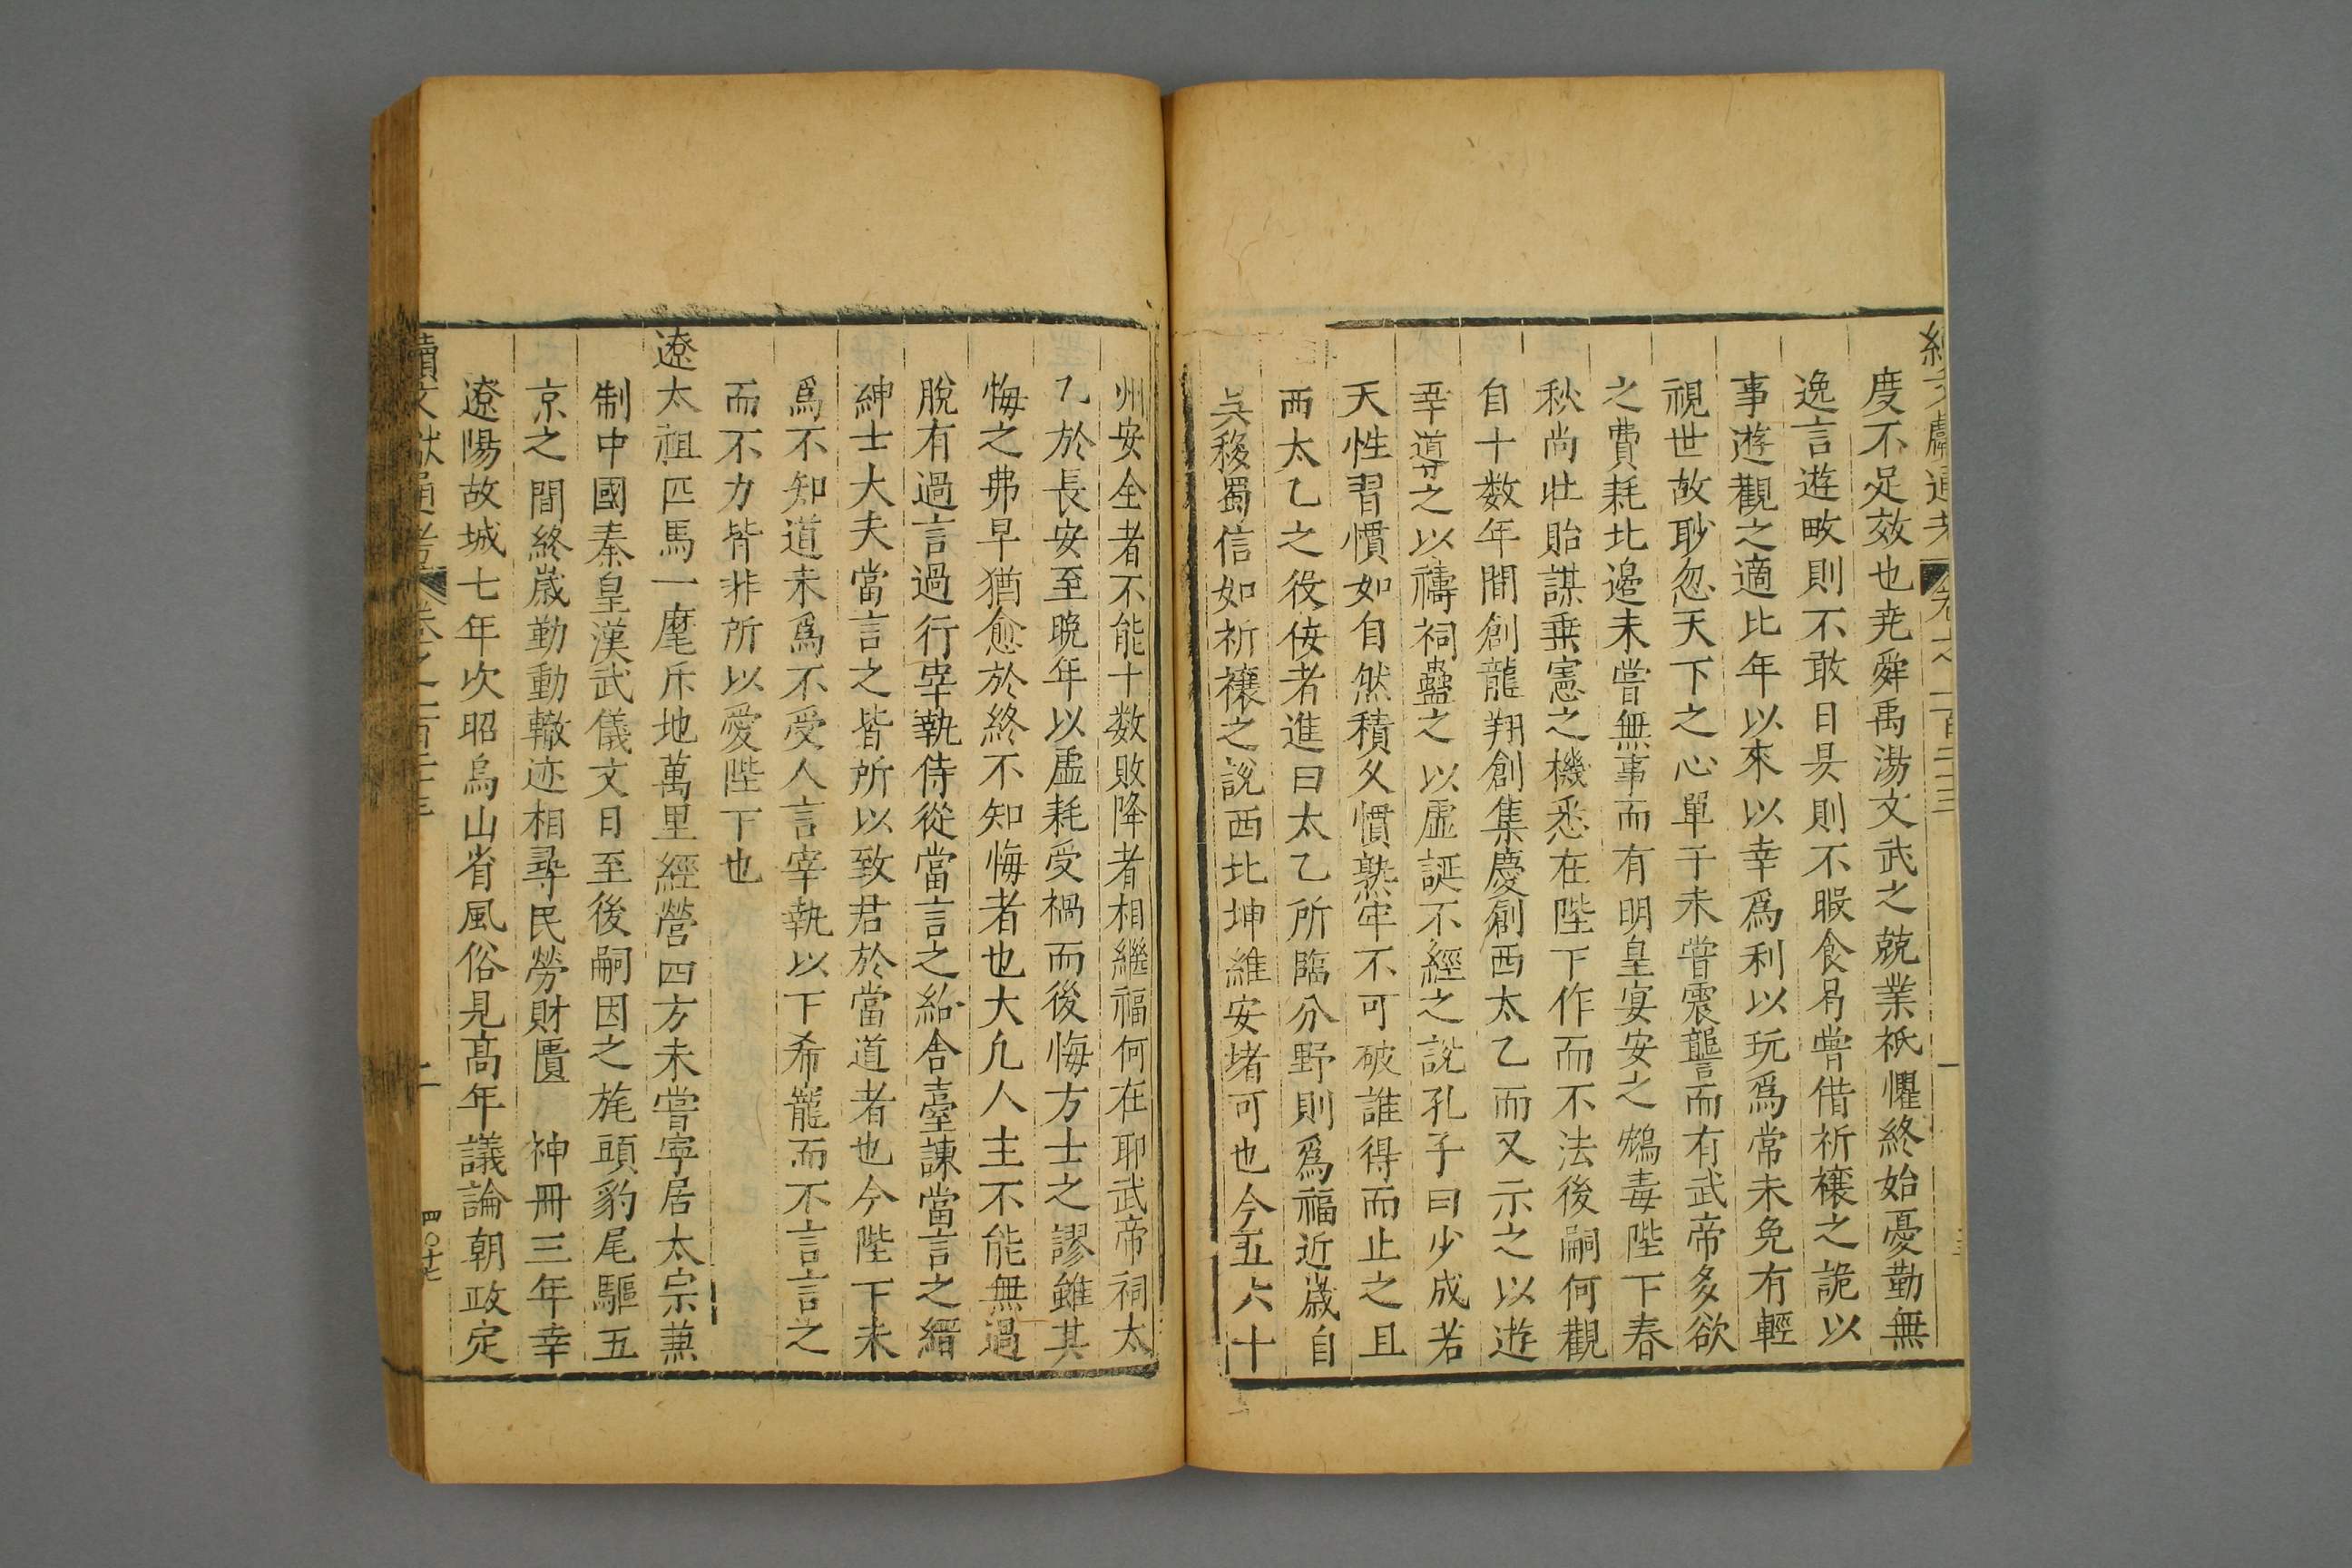 度不足效也尭舜禹湯文武之兢業祇懼終始憂勤無
逸言遊畋則不敢日昃則不暇食曷嘗借祈禳之詭以
事遊觀之適比年以來以幸爲利以玩爲常未免有輕
視世故耹忽天下之心單于未嘗震讋而有武帝多欲
之費耗北邊未嘗無事而有明皇宴安之鴆毒陛下春
秋尚壯貽謀垂憲之機悉在陛下作而不法後嗣何觀
自十数年間創龍翔創集慶創西太乙而又示之以遊
幸導之以禱祠蠱之以虛誕不經之說孔子曰少成若
天性習慣如自然積久慣熟牢不可破誰得而止之且
西太乙之役侫者進曰太乙所臨分野則爲福近歲自
吳移蜀信如祈禳之說西北坤維安堵可也今五六十
州安全者不能十数敗降者相繼福何在耶武帝祠太
乙於長安至晩年以虛耗受禍而後悔方士之謬雖其
悔之弗早猶愈於終不知悔者也大凡人主不能無過
脫有過言過行宰執侍從當言之給舍臺諫當言之縉
紳士大夫當言之皆所以致君於當道者也今陛下未
爲不知道未爲不受人言宰執以下希寵而不言言之
而不力皆非所以愛陛下也
遼太祖匹馬一麾斥地萬里經營四方未嘗寧居太宗兼
制中國秦皇漢武儀文日至後嗣因之旄頭豹尾驅五
京之間終歲勤動轍迹相尋民勞財匱 神冊三年幸
遼陽故城七年次昭烏山省風俗見高年議論朝政定
續文獻通考 卷之二百二十三 二
四〇十七